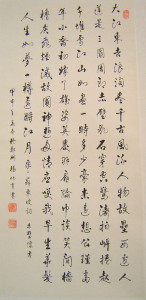 大江東去浪淘盡千古風流人物故壘西邊人
道是三國周郎赤壁亂石穿空驚濤拍岸捲起
千堆雪江山如畫一時多少豪傑遙想公瑾當
年小喬初嫁了雄姿英發羽扇綸巾談笑間檣
櫓灰飛煙滅故國神遊多情應笑我早生華髮
人生如夢一樽還酹江月 蘇東坡詞 赤壁懷古
甲申年